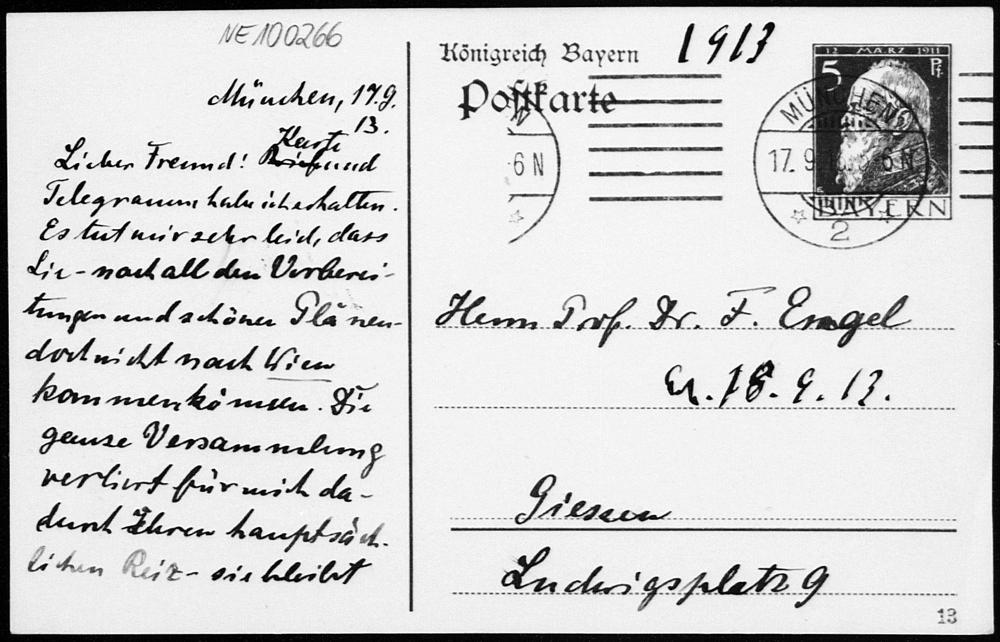 NE100266
München, 17.9.
13.
Karte
Lieber Freund! Brief und
Telegramm habe ich erhalten.
Es tut mir sehr leid, dass
Sie - nach all den Vorberei-
tungen und schönen Plänen -
doch nicht nach Wien
kommen können. Die
ganze Versammlung
verliert für mich da-
durch Ihren hauptsäch-
lichen Reiz - sie bleibt
Königreich Bayern
1913
Postkarte
12 MÄRZ 1911
5 Pf.
BAYERN
6 N
MÜNCHEN
17. 9. 6 N
2
Herrn Prof. Dr. F. Engel
Er. 18.9.13.
Giessen
Ludwigsplatz 9
13